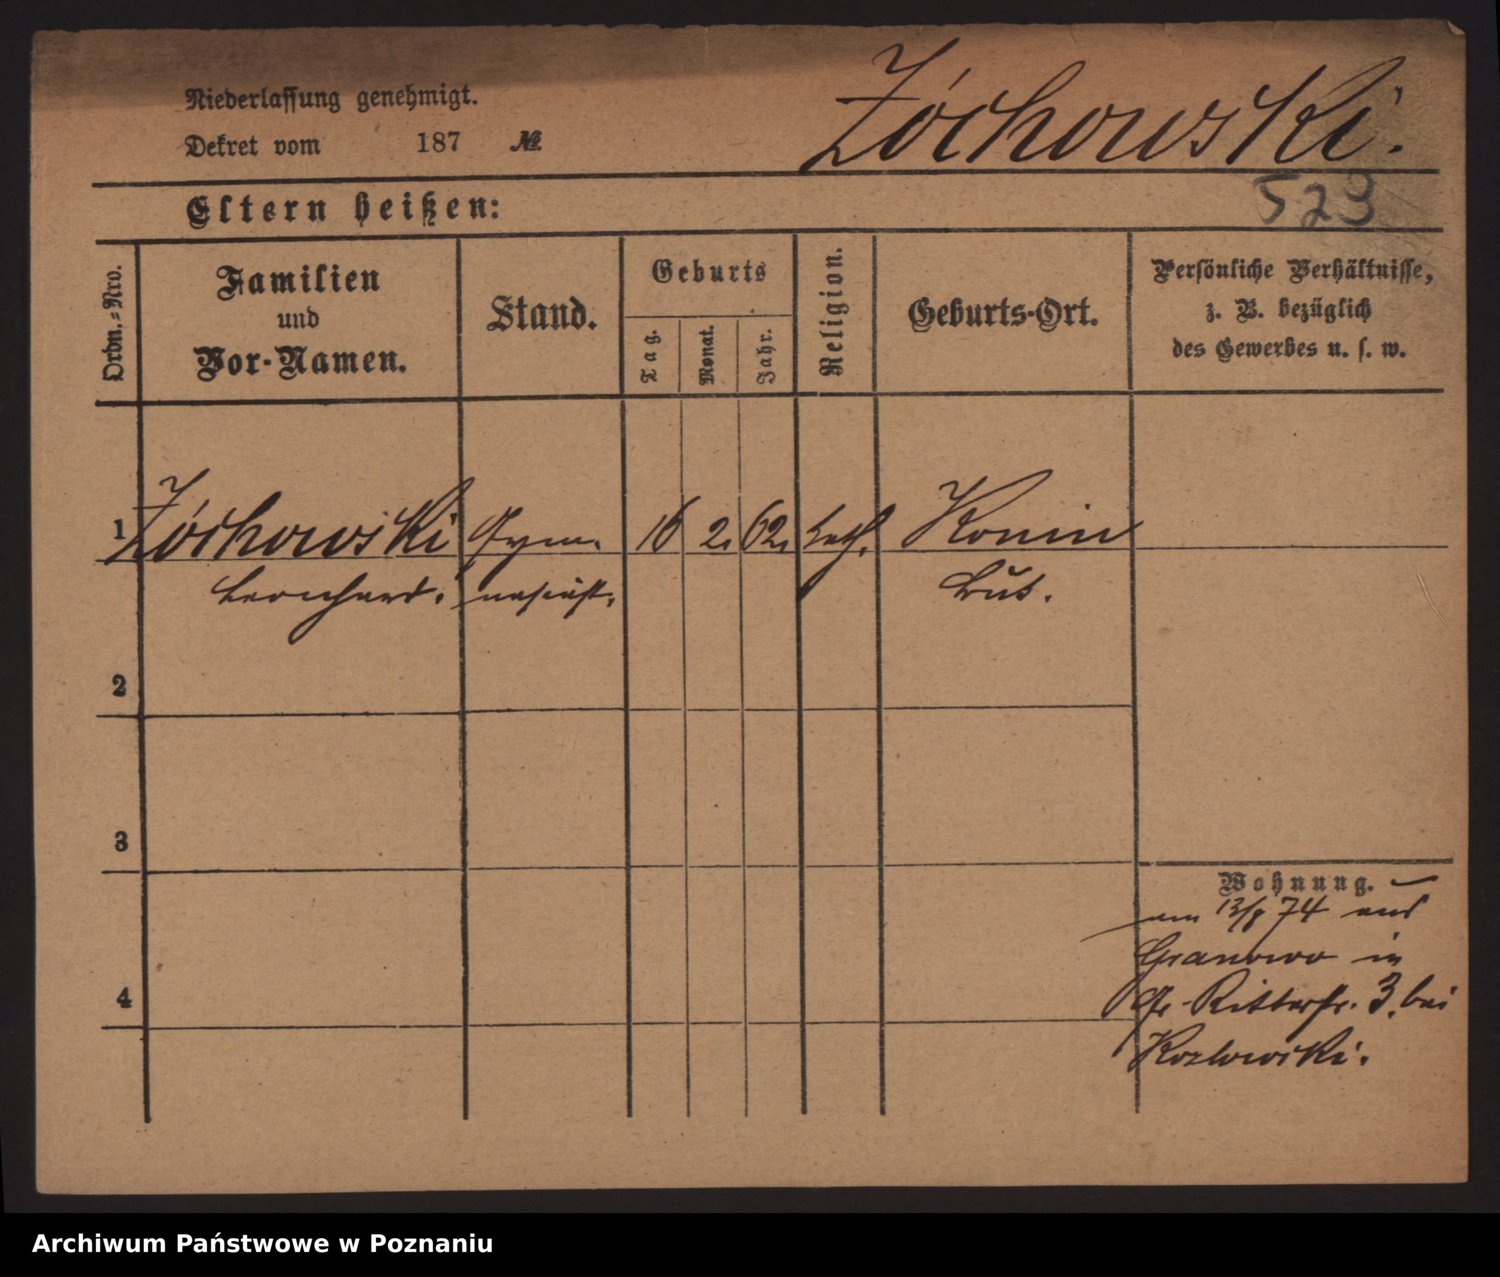 Niederlassung genehmigt.
Dekret vom 187 №
Zóchowski.
Eltern heißen:
523
Ordn.=Nro.
Familien
und
Vor-Namen.
Stand.
Geburts
Tag.
Monat.
Jahr.
Religion.
Geburts-Ort.
Persönliche Verhältnisse,
z. B. bezüglich
des Gewerbes u. s. w.
1 Zóchowski Gym- 16 2. 62. kath. Konin
Leonhard. nasiast. Buk.
2
3
Wohnung.
am 13/8 74 aus
Granowo in
Gr. Ritterstr. 3. bei
4
Kozlowski.
Archiwum Państwowe w Poznaniu